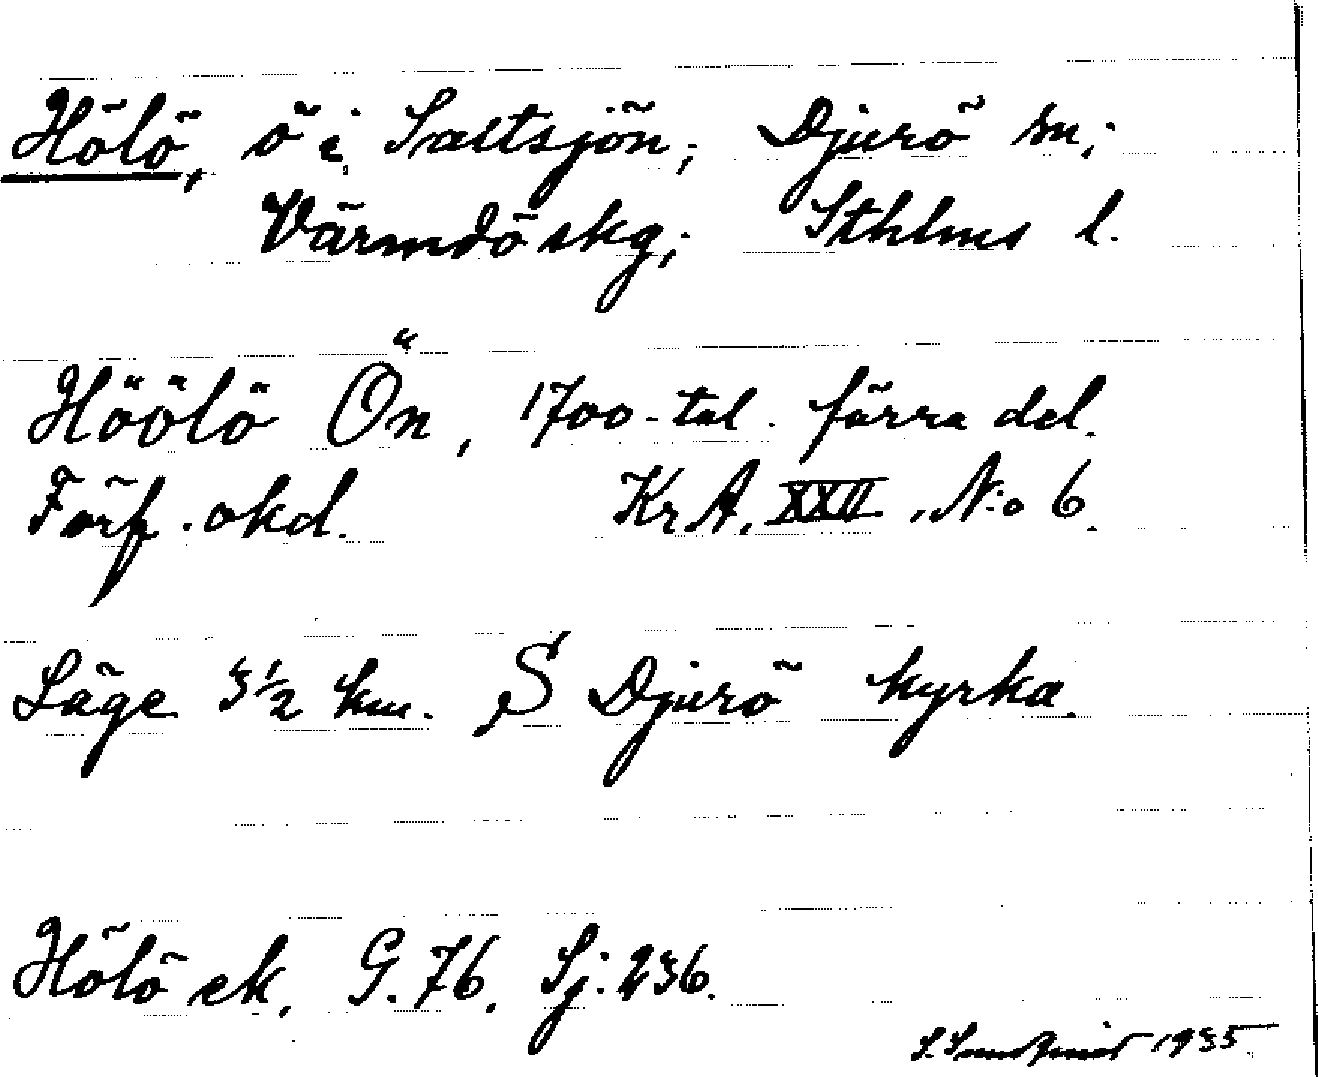 Hölö, ö i Saltsjön; Djurö sn;
Värmdö skg; Sthlms l.
Höölö Ön, 1700-tal. färra del.
Förf. okd. KrA. XXII, N:o 6.
Läge 3½ km. S Djurö kyrka.
Hölö ek. G.76. Sj: 236.
1935.